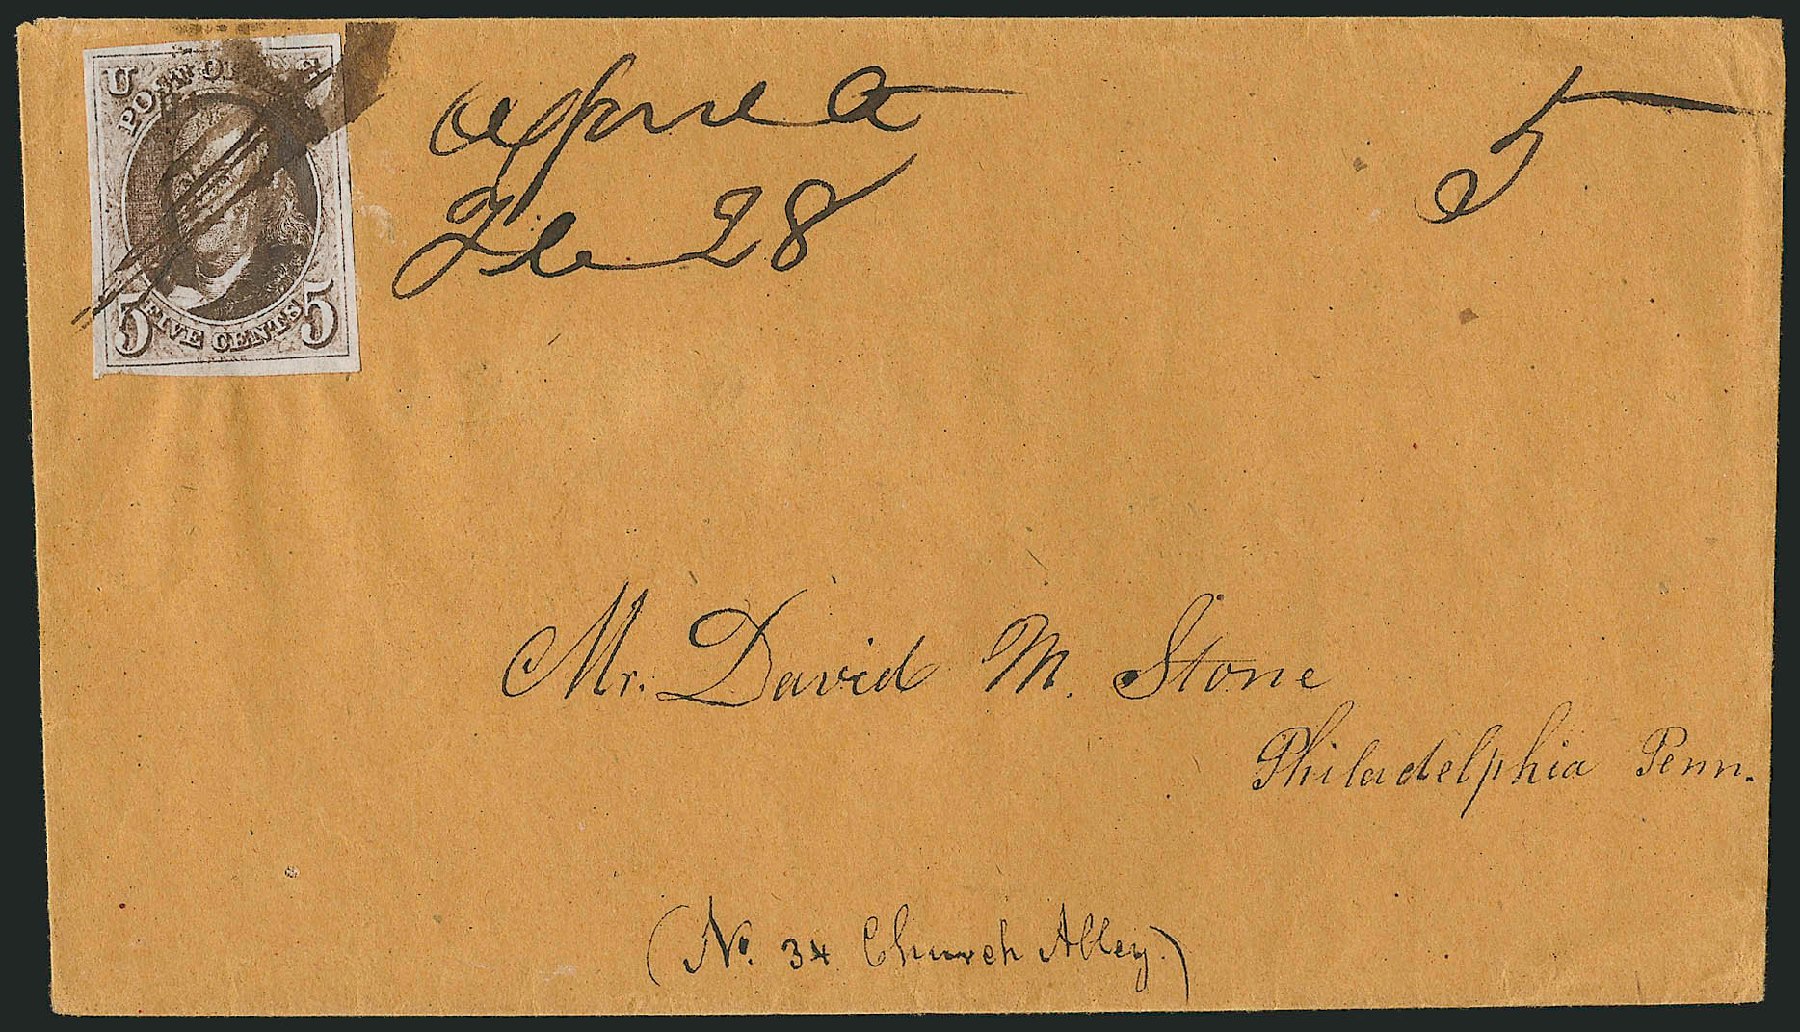 U
POST OFFICE
5 FIVE CENTS 5
Fe 28
5
Mr. David M. Stone
Philadelphia Penn.
(No. 34 Church Alley.)